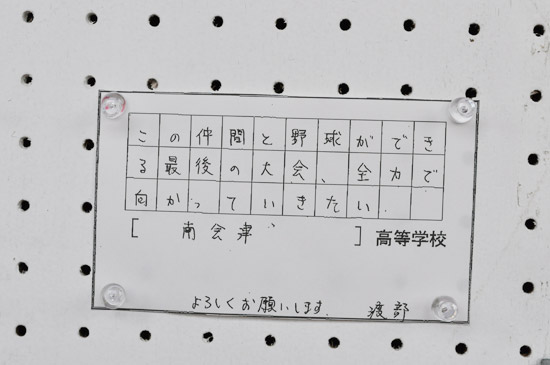 この仲間と野球ができ
る最後の大会、全力で
向かっていきたい
[ 南会津 ] 高等学校
よろしくお願いします。 渡部